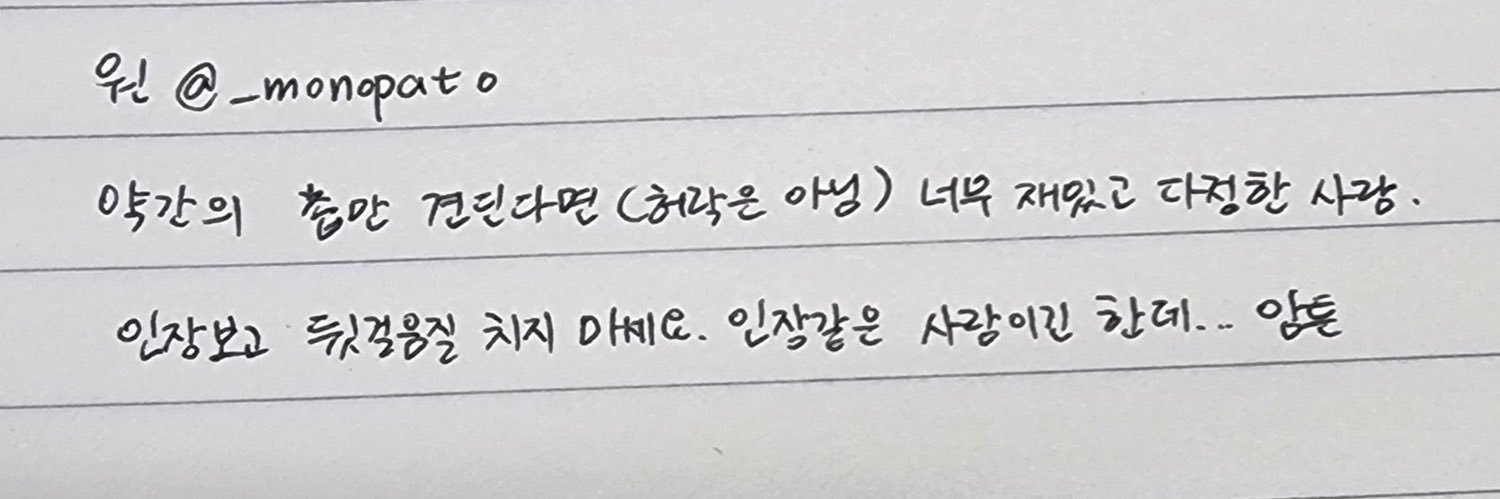 원 @_monopato
약간의 춉만 견딘다면 (허락은 아닝) 너무 재밌고 다정한 사람.
인장보고 뒷걸음질 치지 마세요. 인장같은 사람이긴 한데... 암튼